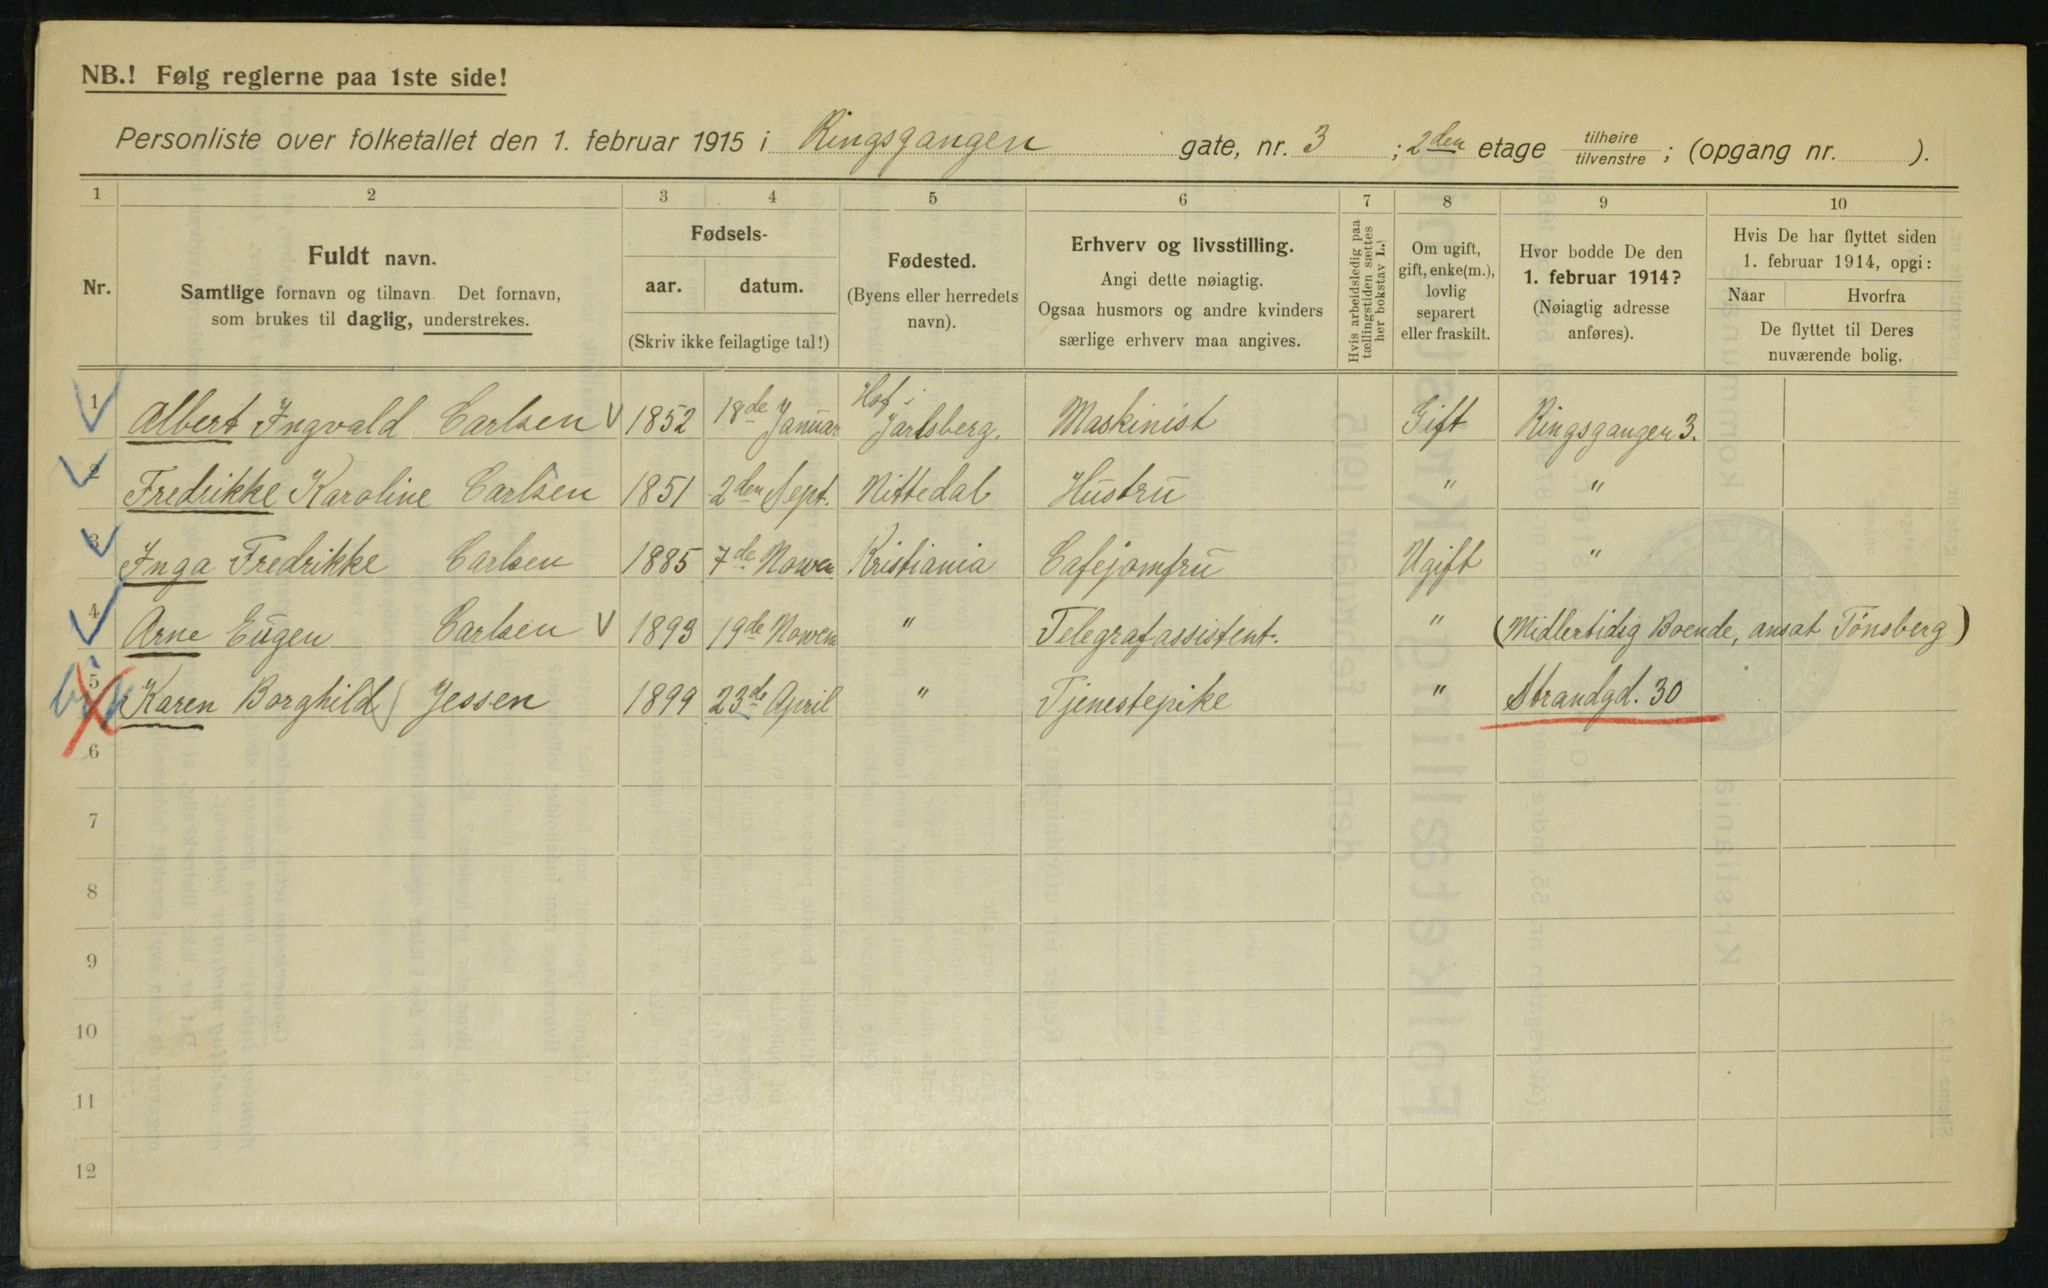 NB.! Følg reglerne paa 1ste side!
Personliste over folketallet den 1. februar 1915 i Ringsgangen gate, nr. 3 ; 2den etage tilhøire/tilvenstre ; (opgang nr. ).
1 2 3 4 5 6 7 8 9 10
Nr.
Fuldt navn.
Samtlige fornavn og tilnavn. Det fornavn,
som brukes til daglig, understrekes.
Fødsels-
aar. datum.
(Skriv ikke feilagtige tal!)
Fødested.
(Byens eller herredets
navn).
Erhverv og livsstilling.
Angi dette nøiagtig.
Ogsaa husmors og andre kvinders
særlige erhverv maa angives.
Hvis arbeidsledig paa
tællingstiden sættes
her bokstav L.!
Om ugift,
gift, enke(m.),
lovlig
separert
eller fraskilt.
Hvor bodde De den
1. februar 1914?
(Nøiagtig adresse
anføres).
Hvis De har flyttet siden
1. februar 1914, opgi:
Naar Hvorfra
De flyttet til Deres
nuværende bolig.
1 Albert Ingvald Carlsen 1852 18de Januar Hof i Jarlsberg. Maskinist Gift Ringsgangen 3.
2 Fredrikke Karoline Carlsen 1851 2den Sept. Nittedal Hustru " "
3 Inga Fredrikke Carlsen 1885 7de Novem. Kristiania Cafejomfru Ugift "
4 Arne Eugen Carlsen 1893 19de Novem " Telegrafassistent. " (Midlertidig Boende, ansat Tönsberg)
5 Karen Borghild Jessen 1899 23de April " Tjenestepike " Strandgd. 30
6
7
8
9
10
11
12